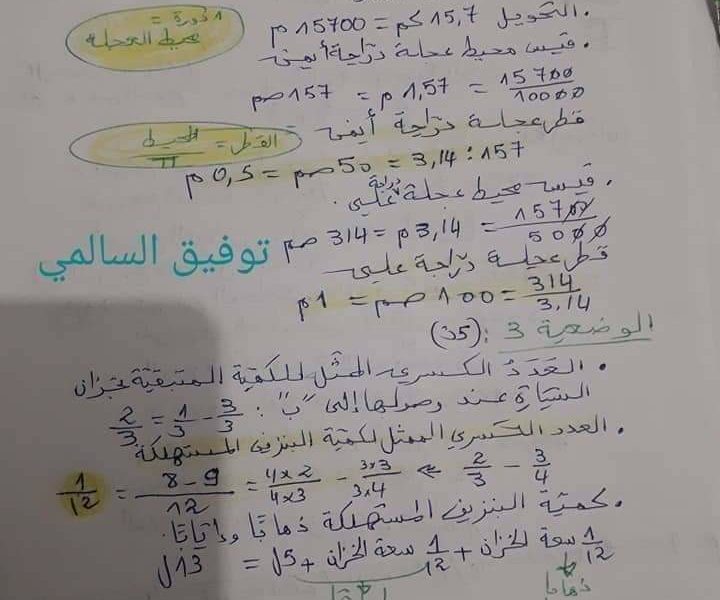 1 دورة =
محيط العجلة
. التحويل 15,7 كم = 15700 م
. قيس محيط عجلة درّاجة أيمن
15700/10000 = 1,57 م = 157 صم
قطر عجلة درّاجة أيمن
القطر = المحيط/π
157 : 3,14 = 50 صم = 0,5 م
. قيس محيط عجلة دراجة علي.
15700/5000 = 3,14 م = 314 صم
قطر عجلة درّاجة علي
314/3,14 = 100 صم = 1 م
توفيق السالمي
الوضعية 3 : (5ن)
. العَدَدُ الكسري الممثّل للكمية المتبقيّة بخزان
السيّارة عند وصولها إلى "ب" : 3/3 - 1/3 = 2/3
. العدد الكسري الممثل لكمية البنزين المستهلكة
3/4 - 2/3 => 3x3/3x4 - 4x2/4x3 = 9 - 8/12 = 1/12
. كميّة البنزين المستهلكة ذهابًا وإيابًا.
1/12 سعة الخزان + 1/12 سعة الخزان + 5ل = 13ل
ذهابا